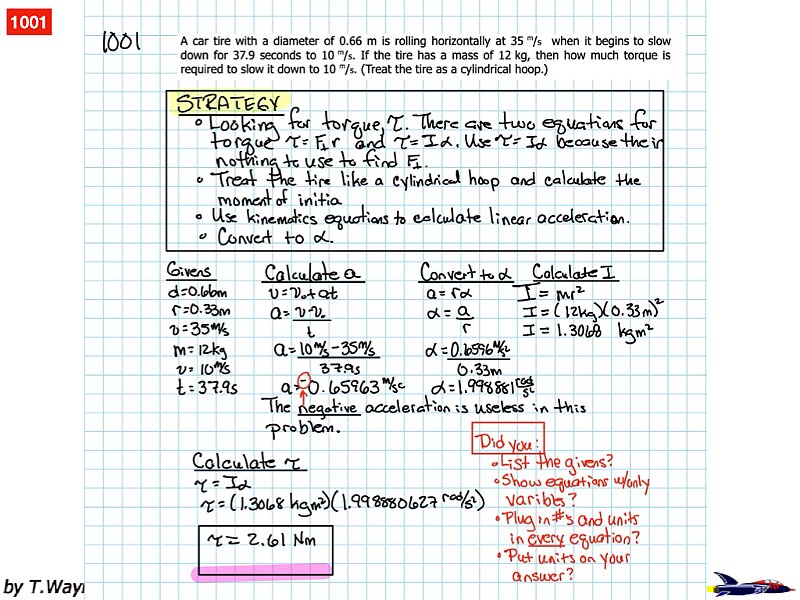 1001
1001
A car tire with a diameter of 0.66 m is rolling horizontally at 35 m/s when it begins to slow
down for 37.9 seconds to 10 m/s. If the tire has a mass of 12 kg, then how much torque is
required to slow it down to 10 m/s. (Treat the tire as a cylindrical hoop.)
STRATEGY
• Looking for torque, τ. There are two equations for
torque τ = F⊥r and τ = Iα. Use τ = Iα because their
nothing to use to find F⊥.
• Treat the tire like a cylindrical hoop and calculate the
moment of initia
• Use kinematics equations to calculate linear acceleration.
• Convert to α.
Givens
d=0.66m
r=0.33m
v=35 m/s
m=12kg
v=10 m/s
t=37.9s
Calculate a
v=v₀+at
a=v-v₀/t
a=10 m/s-35 m/s/37.9s
a=-0.65963 m/s²
The negative acceleration is useless in this
problem.
Convert to α
a=rα
α=a/r
α=0.6596 m/s²/0.33m
α=1.998881 rad/s²
Calculate I
I=mr²
I=(12kg)(0.33m)²
I=1.3068 kgm²
Calculate τ
τ=Iα
τ=(1.3068 kgm²)(1.998880627 rad/s²)
τ=2.61 Nm
Did you:
• List the givens?
• Show equations w/only
varibles?
• Plug in #'s and units
in every equation?
• Put units on your
answer?
by T.Way